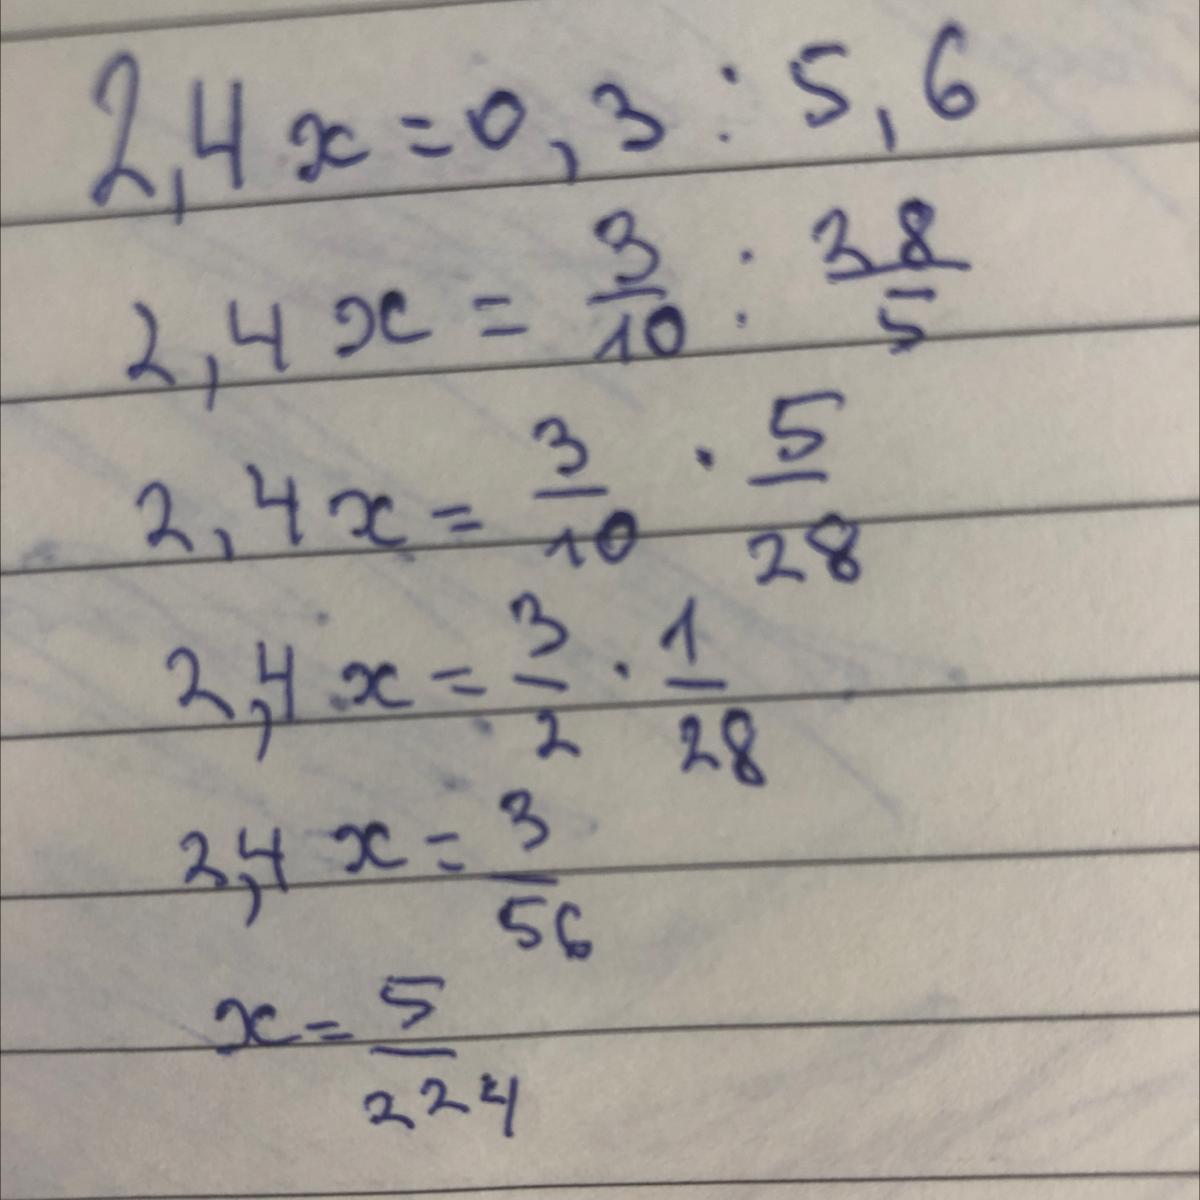 2,4x=0,3:5,6
2,4x=3/10:28/5
2,4x=3/10·5/28
2,4x=3/2·1/28
2,4x=3/56
x=5/224